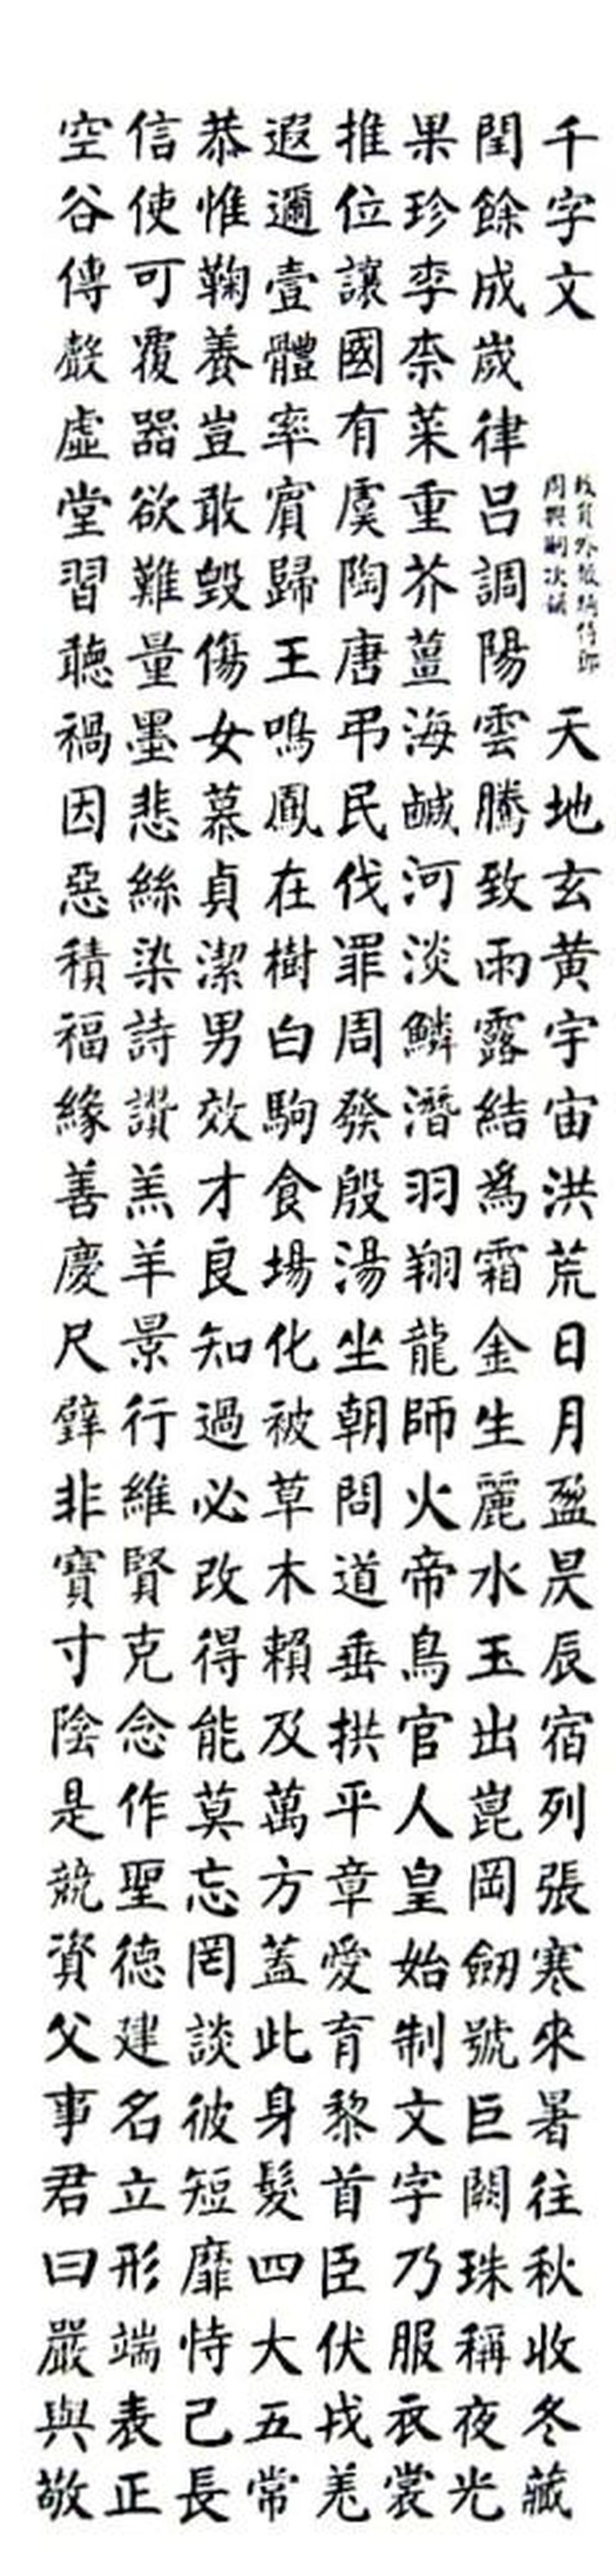 千字文
敕員外散騎侍郎
周興嗣次韻
天地玄黃宇宙洪荒日月盈昃辰宿列張寒來暑往秋收冬藏
閏餘成歲律呂調陽雲騰致雨露結為霜金生麗水玉出崑岡劒號巨闕珠稱夜光
果珍李柰菜重芥薑海鹹河淡鱗潛羽翔龍師火帝鳥官人皇始制文字乃服衣裳
推位讓國有虞陶唐弔民伐罪周發殷湯坐朝問道垂拱平章愛育黎首臣伏戎羌
遐邇壹體率賓歸王鳴鳳在樹白駒食場化被草木賴及萬方蓋此身髮四大五常
恭惟鞠養豈敢毀傷女慕貞潔男效才良知過必改得能莫忘罔談彼短靡恃己長
信使可覆器欲難量墨悲絲染詩讚羔羊景行維賢克念作聖德建名立形端表正
空谷傳聲虛堂習聽禍因惡積福緣善慶尺璧非寶寸陰是競資父事君曰嚴與敬